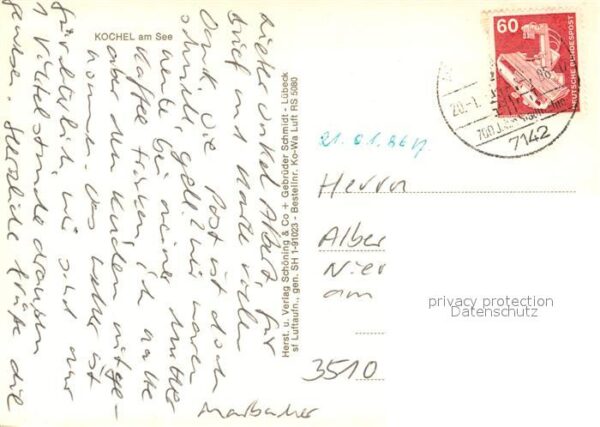 KOCHEL am See
Lieber Onkel Albert, für
Brief und Karte vielen
Dank. Die Post ist doch
schnell, gell! Wir waren
heute bei meiner Mutter
Kaffee trinken, ich hatte
aber den Kuchen mitge-
nommen. Das Wetter ist
fürchterlich, wir sind nur
1 Viertelstunde draußen
gewesen. Herzliche Grüße die
Marbacher
Herst. u. Verlag Schöning & Co + Gebrüder Schmidt - Lübeck
sf Luftaufn., gen. SH 1-91023 - Bestellnr. Ko-Wa Luft RS 5080
60
DEUTSCHE BUNDESPOST
20.-1.
86
7142
21.01.86
Herrn
Alber
Nier
am
3510
privacy protection
Datenschutz